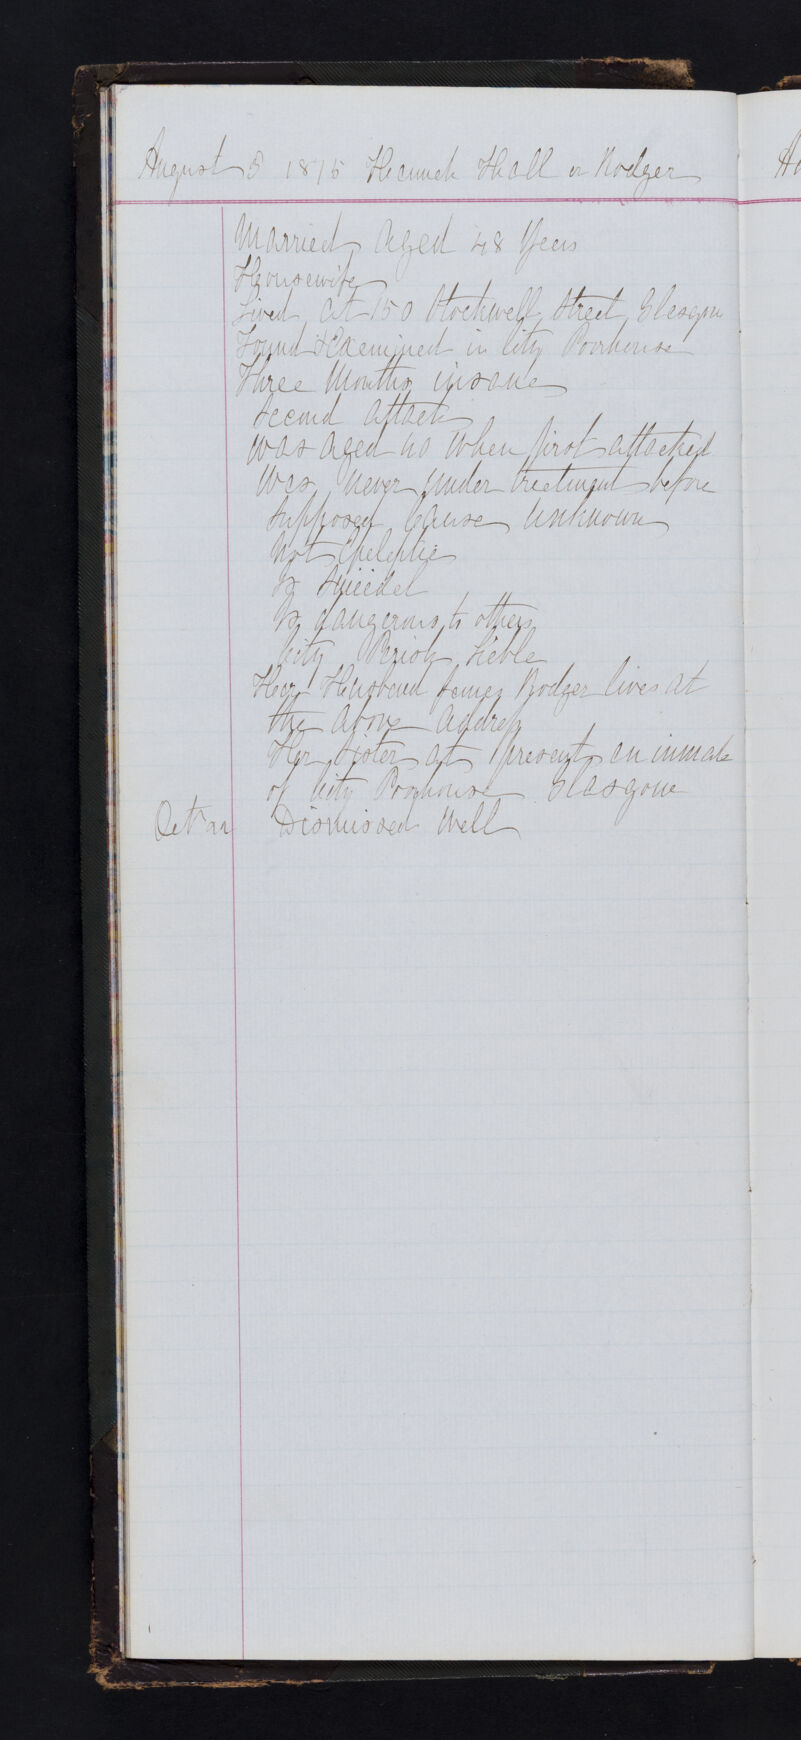 August 5 1875 Hannah Hall or Rodger
Married aged 48 Years
Housewife
Lived at 150 Stockwell Street Glasgow
Found & Examined in City Poorhouse
Three Months insane
Second attack
was aged 40 when first attacked
Was never under treatment before
Supposed Cause Unknown
Not Epileptic
Is Suicidal
Is dangerous to others
City Parish Liable
Her Husband James Rodger lives at
the above address
Her Sister at present an inmate
of City Poorhouse Glasgow
Oct 22 Dismissed Well